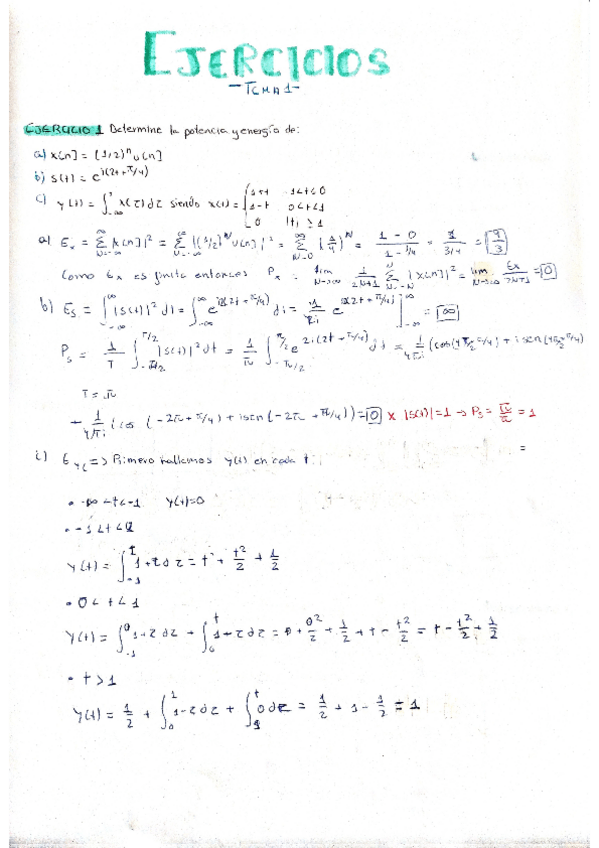 EJERCICIOS
- TEMA 1 -
EJERCICIO 1 Determine la potencia y energía de:
a) x[n] = (1/2)^n u[n]
b) s(t) = e^{i(2t+π/4)}
c) y(t) = ∫_{-∞}^{t} x(τ) dτ siendo x(t) = { 1+t -1<t<0
1-t 0<t<1
0 |t| > 1
a) Ex = Σ_{N=-∞}^{∞} |x[n]|² = Σ_{N=-∞}^{∞} |(1/2)^N u[n]|² = Σ_{N=0}^{∞} (1/4)^N = (1-0)/(1-1/4) = 1/(3/4) = 4/3
Como Ex es finita entonces Px = lim_{N→∞} 1/(2N+1) Σ_{-N}^{N} |x[n]|² = lim_{N→∞} Ex/(2N+1) = 0
b) Es = ∫_{-∞}^{∞} |s(t)|² dt = ∫_{-∞}^{∞} e^{i(2t+π/4)} dt = 1/2i e^{i(2t+π/4)} |_{-∞}^{∞} = ∞
Ps = 1/T ∫_{-T/2}^{T/2} |s(t)|² dt = 1/π ∫_{-π/2}^{π/2} e^{2i(2t+π/4)} dt = 1/4πi (cos(4
T = π
- 1/4πi (cos (-2π+π/4) + i sen (-2π+π/4)) = 0 x |s(t)| = 1 → Ps = π/π = 1
c) => Primero hallamos y(t) en cada t:
=
• -∞<t<-1 y(t)=0
• -1<t<0
y(t) = ∫_{-1}^{t} 1+τ dτ = t + t²/2 + 1/2
• 0<t<1
y(t) = ∫_{-1}^{0} 1+τ dτ + ∫_{0}^{t} 1-τ dτ = 0 + 0²/2 + 1/2 + t - t²/2 = t - t²/2 + 1/2
• t>1
y(t) = 1/2 + ∫_{0}^{1} 1-τ dτ + ∫_{1}^{t} 0 dτ = 1/2 + 1 - 1/2 = 1